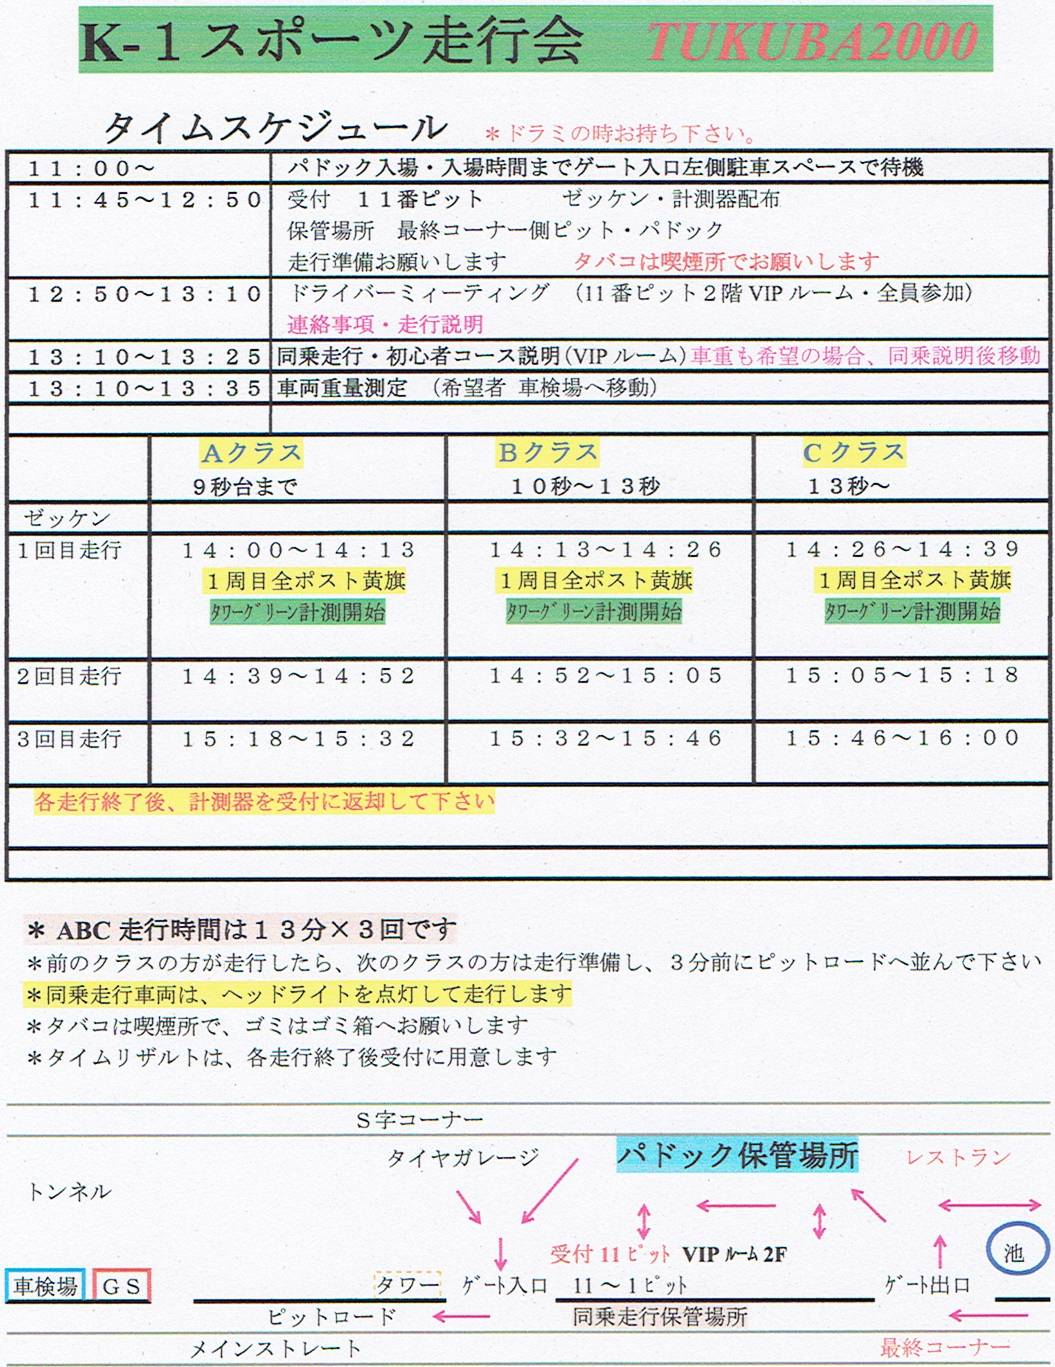 K-１スポーツ走行会 TUKUBA2000
タイムスケジュール ＊ドラミの時お持ち下さい。
１１：００～ パドック入場・入場時間までゲート入口左側駐車スペースで待機
１１：４５～１２：５０ 受付 １１番ピット ゼッケン・計測器配布
保管場所 最終コーナー側ピット・パドック
走行準備お願いします タバコは喫煙所でお願いします
１２：５０～１３：１０ ドライバーミィーティング （11番ピット２階VIPルーム・全員参加）
連絡事項・走行説明
１３：１０～１３：２５ 同乗走行・初心者コース説明（VIPルーム）車重も希望の場合、同乗説明後移動
１３：１０～１３：３５ 車両重量測定 （希望者 車検場へ移動）
Ａクラス Ｂクラス Cクラス
９秒台まで １０秒～１３秒 １３秒～
ゼッケン
１回目走行 １４：００～１４：１３ １４：１３～１４：２６ １４：２６～１４：３９
１周目全ポスト黄旗 １周目全ポスト黄旗 １周目全ポスト黄旗
ﾀﾜｰｸﾞﾘｰﾝ計測開始 ﾀﾜｰｸﾞﾘｰﾝ計測開始 ﾀﾜｰｸﾞﾘｰﾝ計測開始
２回目走行 １４：３９～１４：５２ １４：５２～１５：０５ １５：０５～１５：１８
３回目走行 １５：１８～１５：３２ １５：３２～１５：４６ １５：４６～１６：００
各走行終了後、計測器を受付に返却して下さい
＊ ABC 走行時間は１３分×３回です
＊前のクラスの方が走行したら、次のクラスの方は走行準備し、３分前にピットロードへ並んで下さい
＊同乗走行車両は、ヘッドライトを点灯して走行します
＊タバコは喫煙所で、ゴミはゴミ箱へお願いします
＊タイムリザルトは、各走行終了後受付に用意します
Ｓ字コーナー
タイヤガレージ パドック保管場所 レストラン
トンネル
受付11ﾋﾟｯﾄ VIP ﾙｰﾑ2F 池
車検場 ＧＳ タワー ｹﾞｰﾄ入口 11～1ﾋﾟｯﾄ ｹﾞｰﾄ出口
ピットロード 同乗走行保管場所
メインストレート 最終コーナー